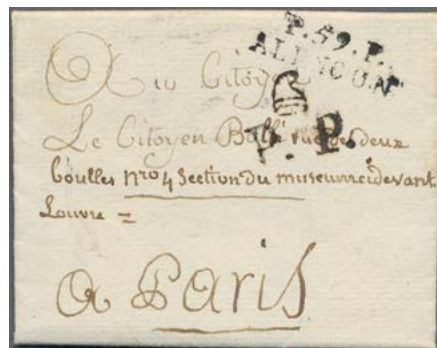 P.59.P.
ALENCON
Au Citoyen
P. P.
Le Citoyen Ballé rue des deux
boulles nro 4 Section du museum cidevant
Louvre =
a Paris